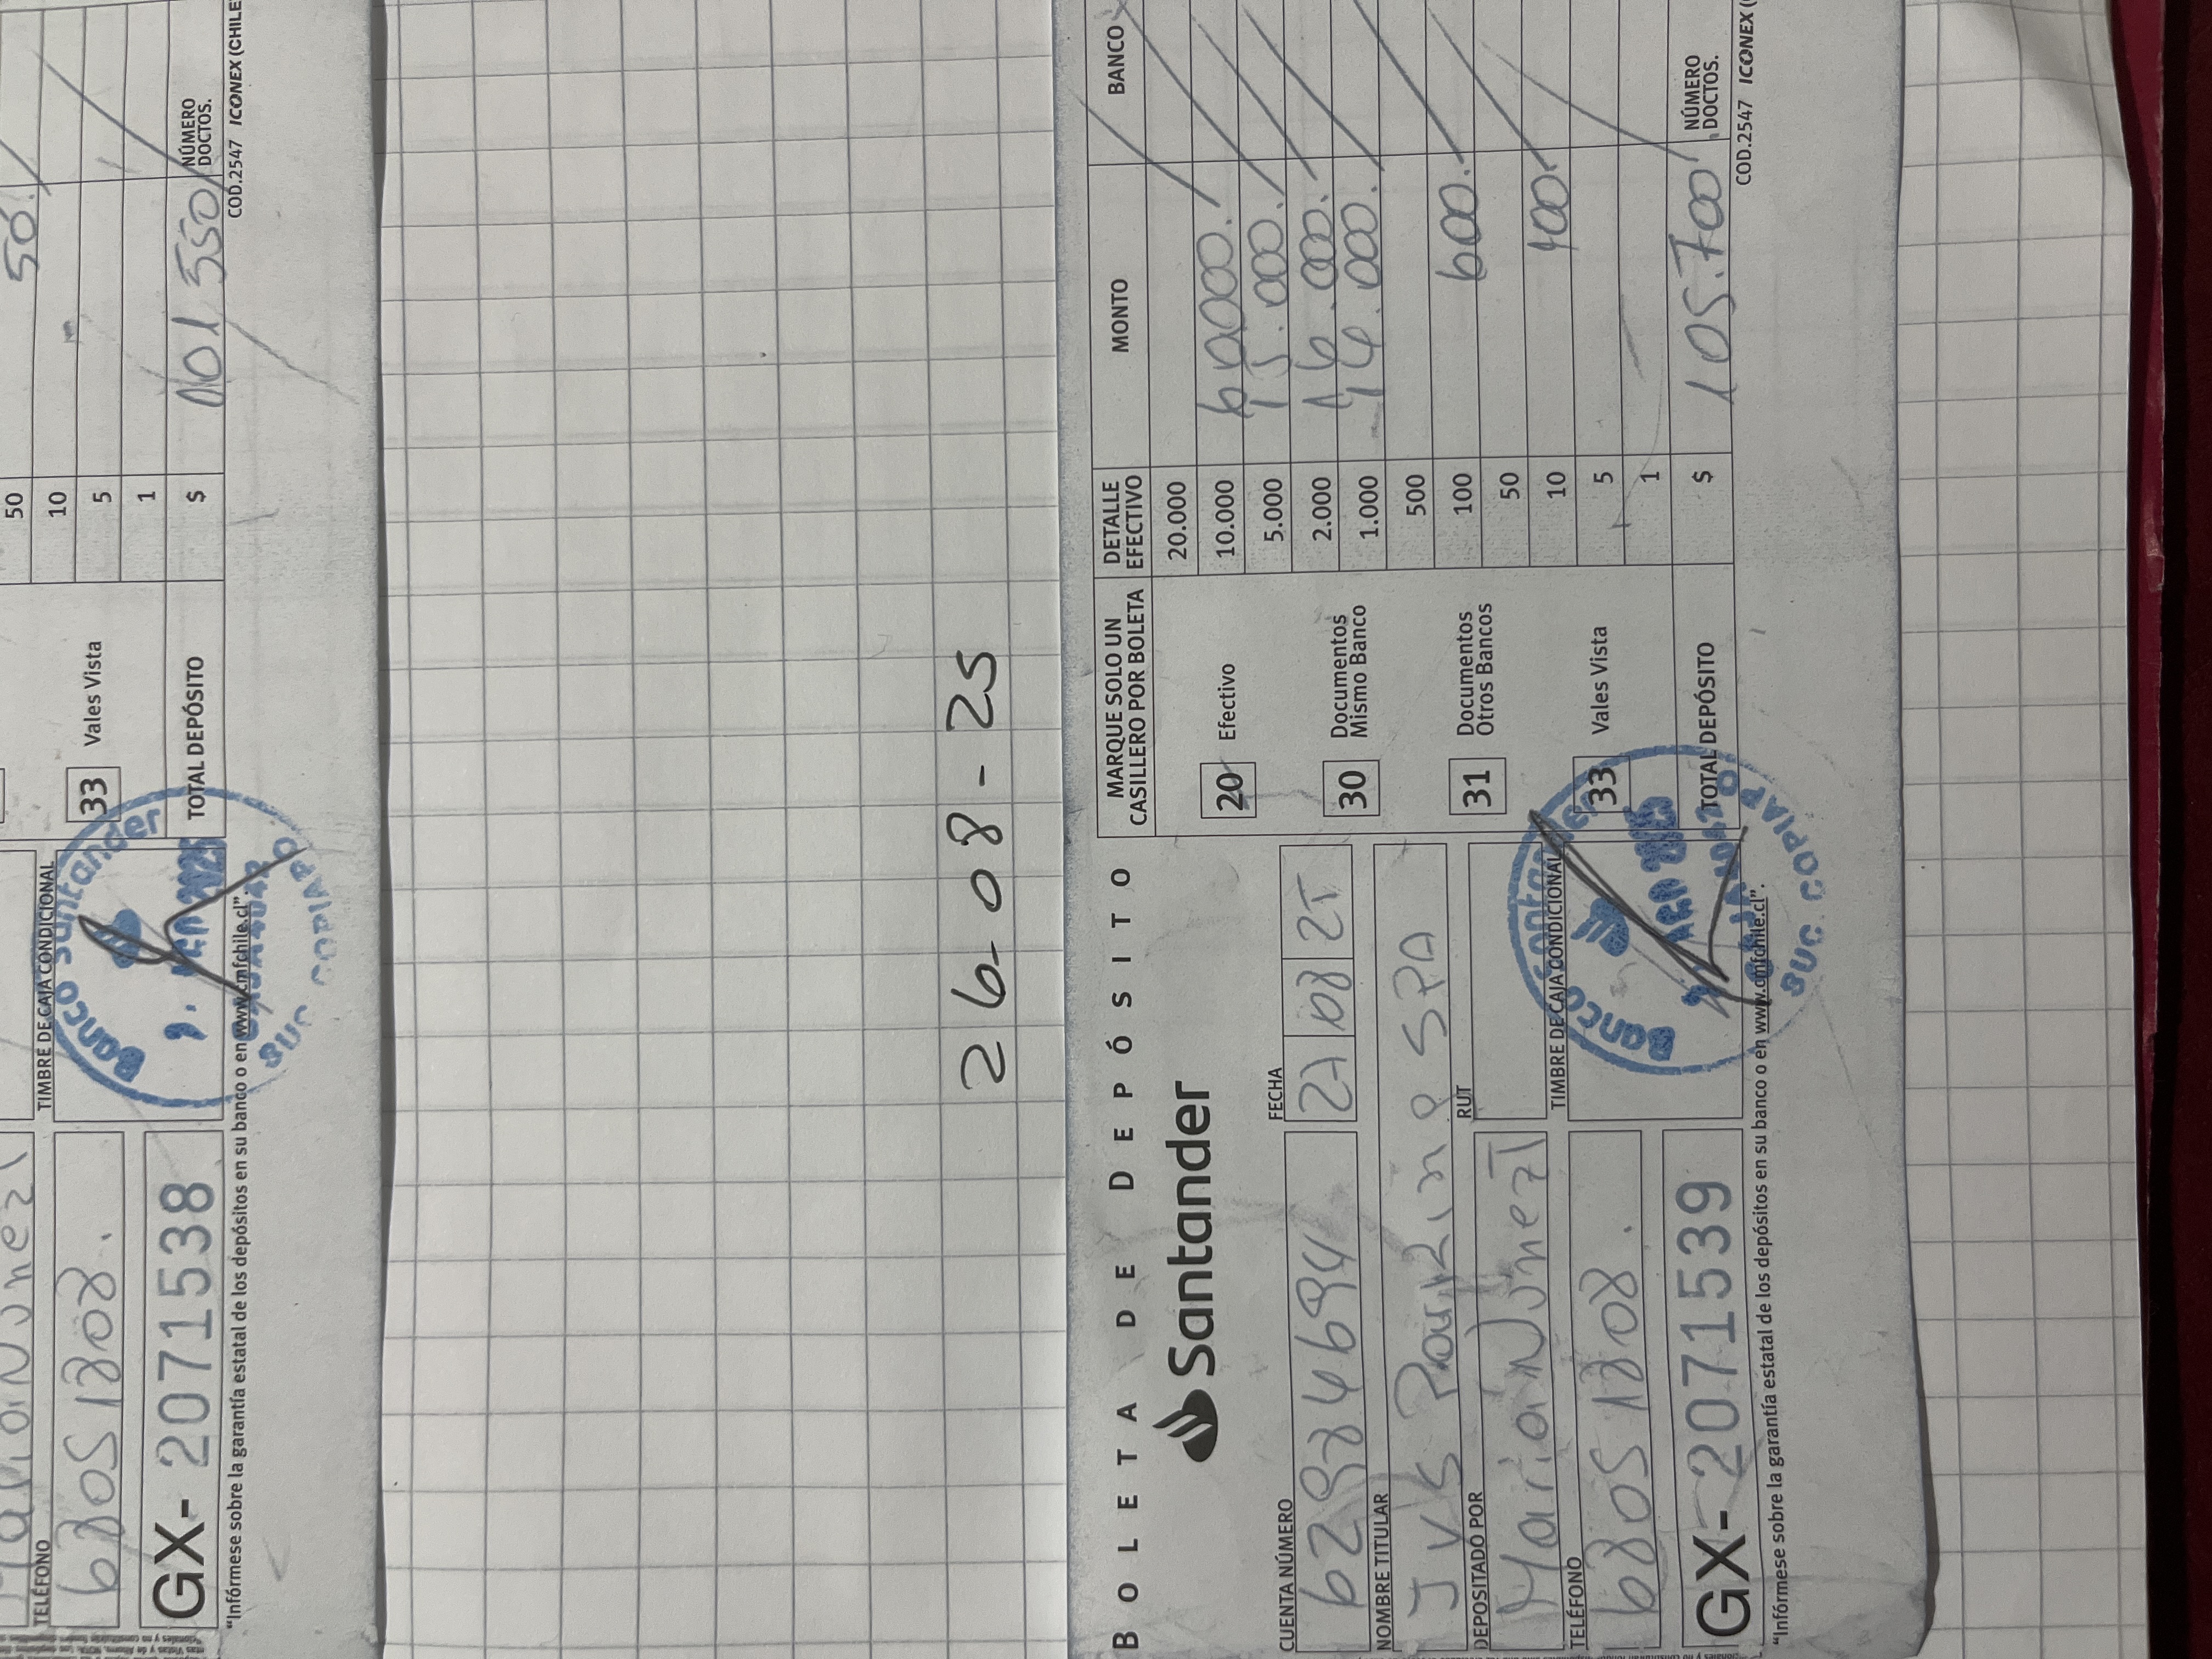 50.
50
10
5
1
$ 101 550
33 Vales Vista
TOTAL DEPÓSITO
NÚMERO DOCTOS.
COD.2547 ICONEX (CHILE
TELÉFONO
TIMBRE DE CAJA CONDICIONAL
68051808.
Banco Santander
SUC. COPIAPO
GX- 2071538
“Infórmese sobre la garantía estatal de los depósitos en su banco o en www.cmfchile.cl”
26-08-25
BOLETA DE DEPÓSITO
Santander
MARQUE SOLO UN CASILLERO POR BOLETA
DETALLE EFECTIVO
MONTO
BANCO
20.000
20 Efectivo
10.000 60000.
5.000 15.000.
30 Documentos Mismo Banco
2.000 16.000.
1.000 14.000.
500
31 Documentos Otros Bancos
100 600.
50
10 400
33 Vales Vista
5
1
TOTAL DEPÓSITO
$ 105.700
NÚMERO DOCTOS.
COD.2547 ICONEX (
CUENTA NÚMERO
FECHA
62984694
27 08 25
NOMBRE TITULAR
JVS Parking SPA
DEPOSITADO POR
RUT
Maria Nuñez
TELÉFONO
TIMBRE DE CAJA CONDICIONAL
68051808.
Banco Santander
SUC. COPIAPO
GX- 2071539
“Infórmese sobre la garantía estatal de los depósitos en su banco o en www.cmfchile.cl”.